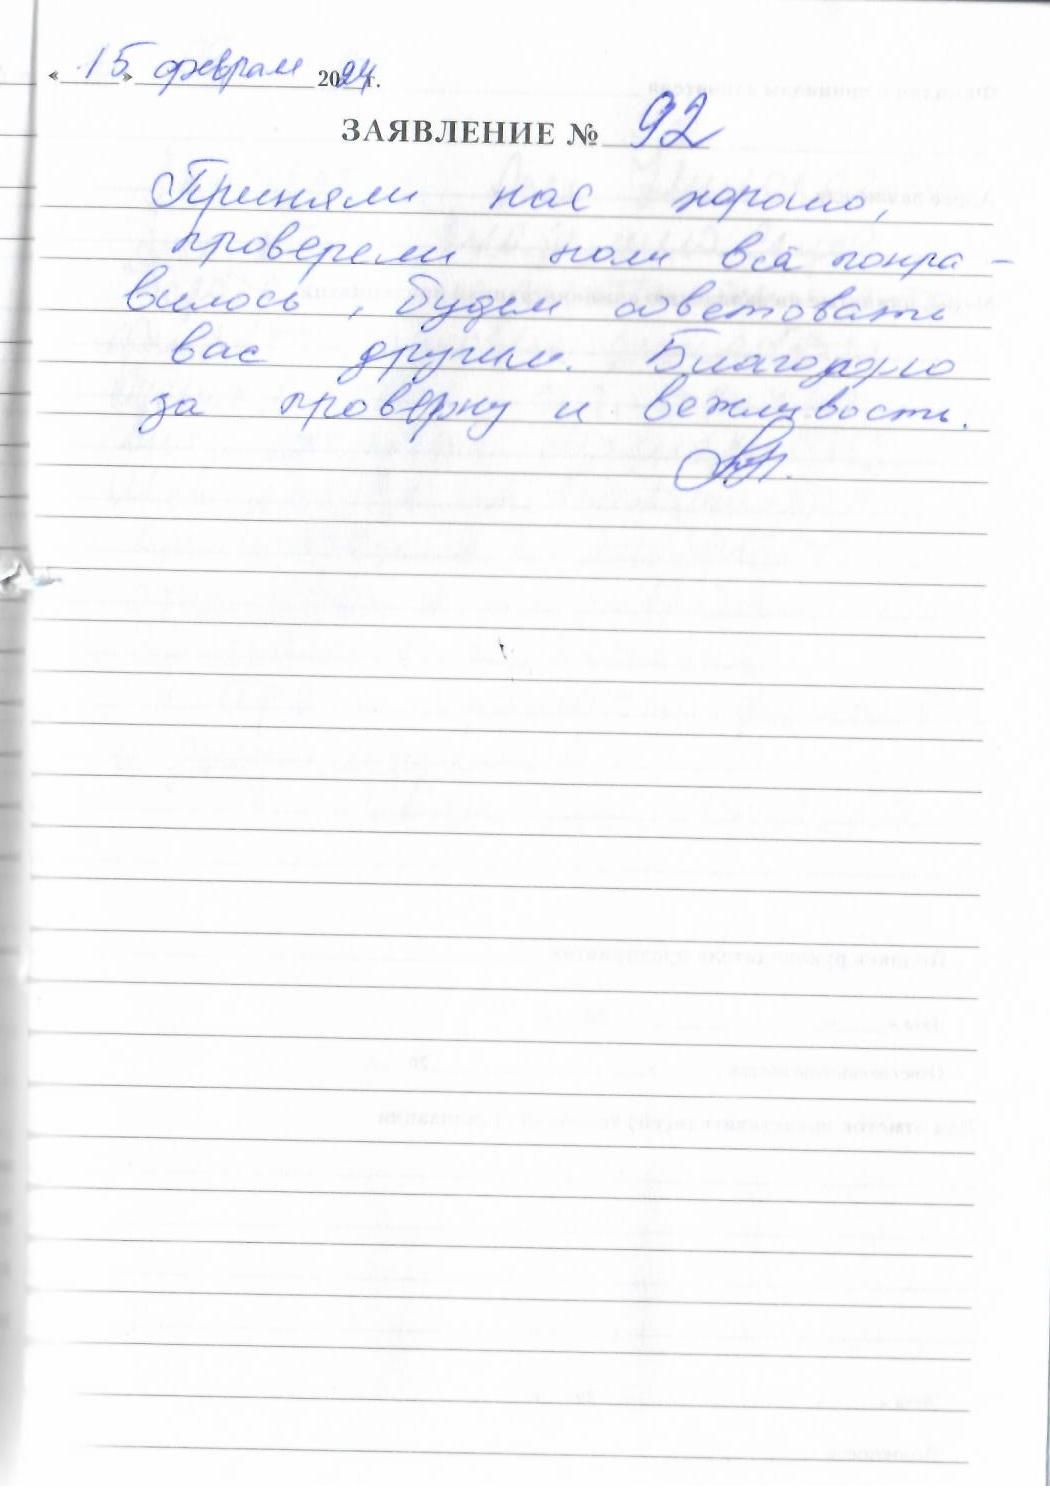 «15» февраля 2024г.
ЗАЯВЛЕНИЕ № 92
Приняли нас хорошо,
проверели нам всё понра-
вилось, будем советовать
вас другим. Благодарю
за проверку и вежливость.